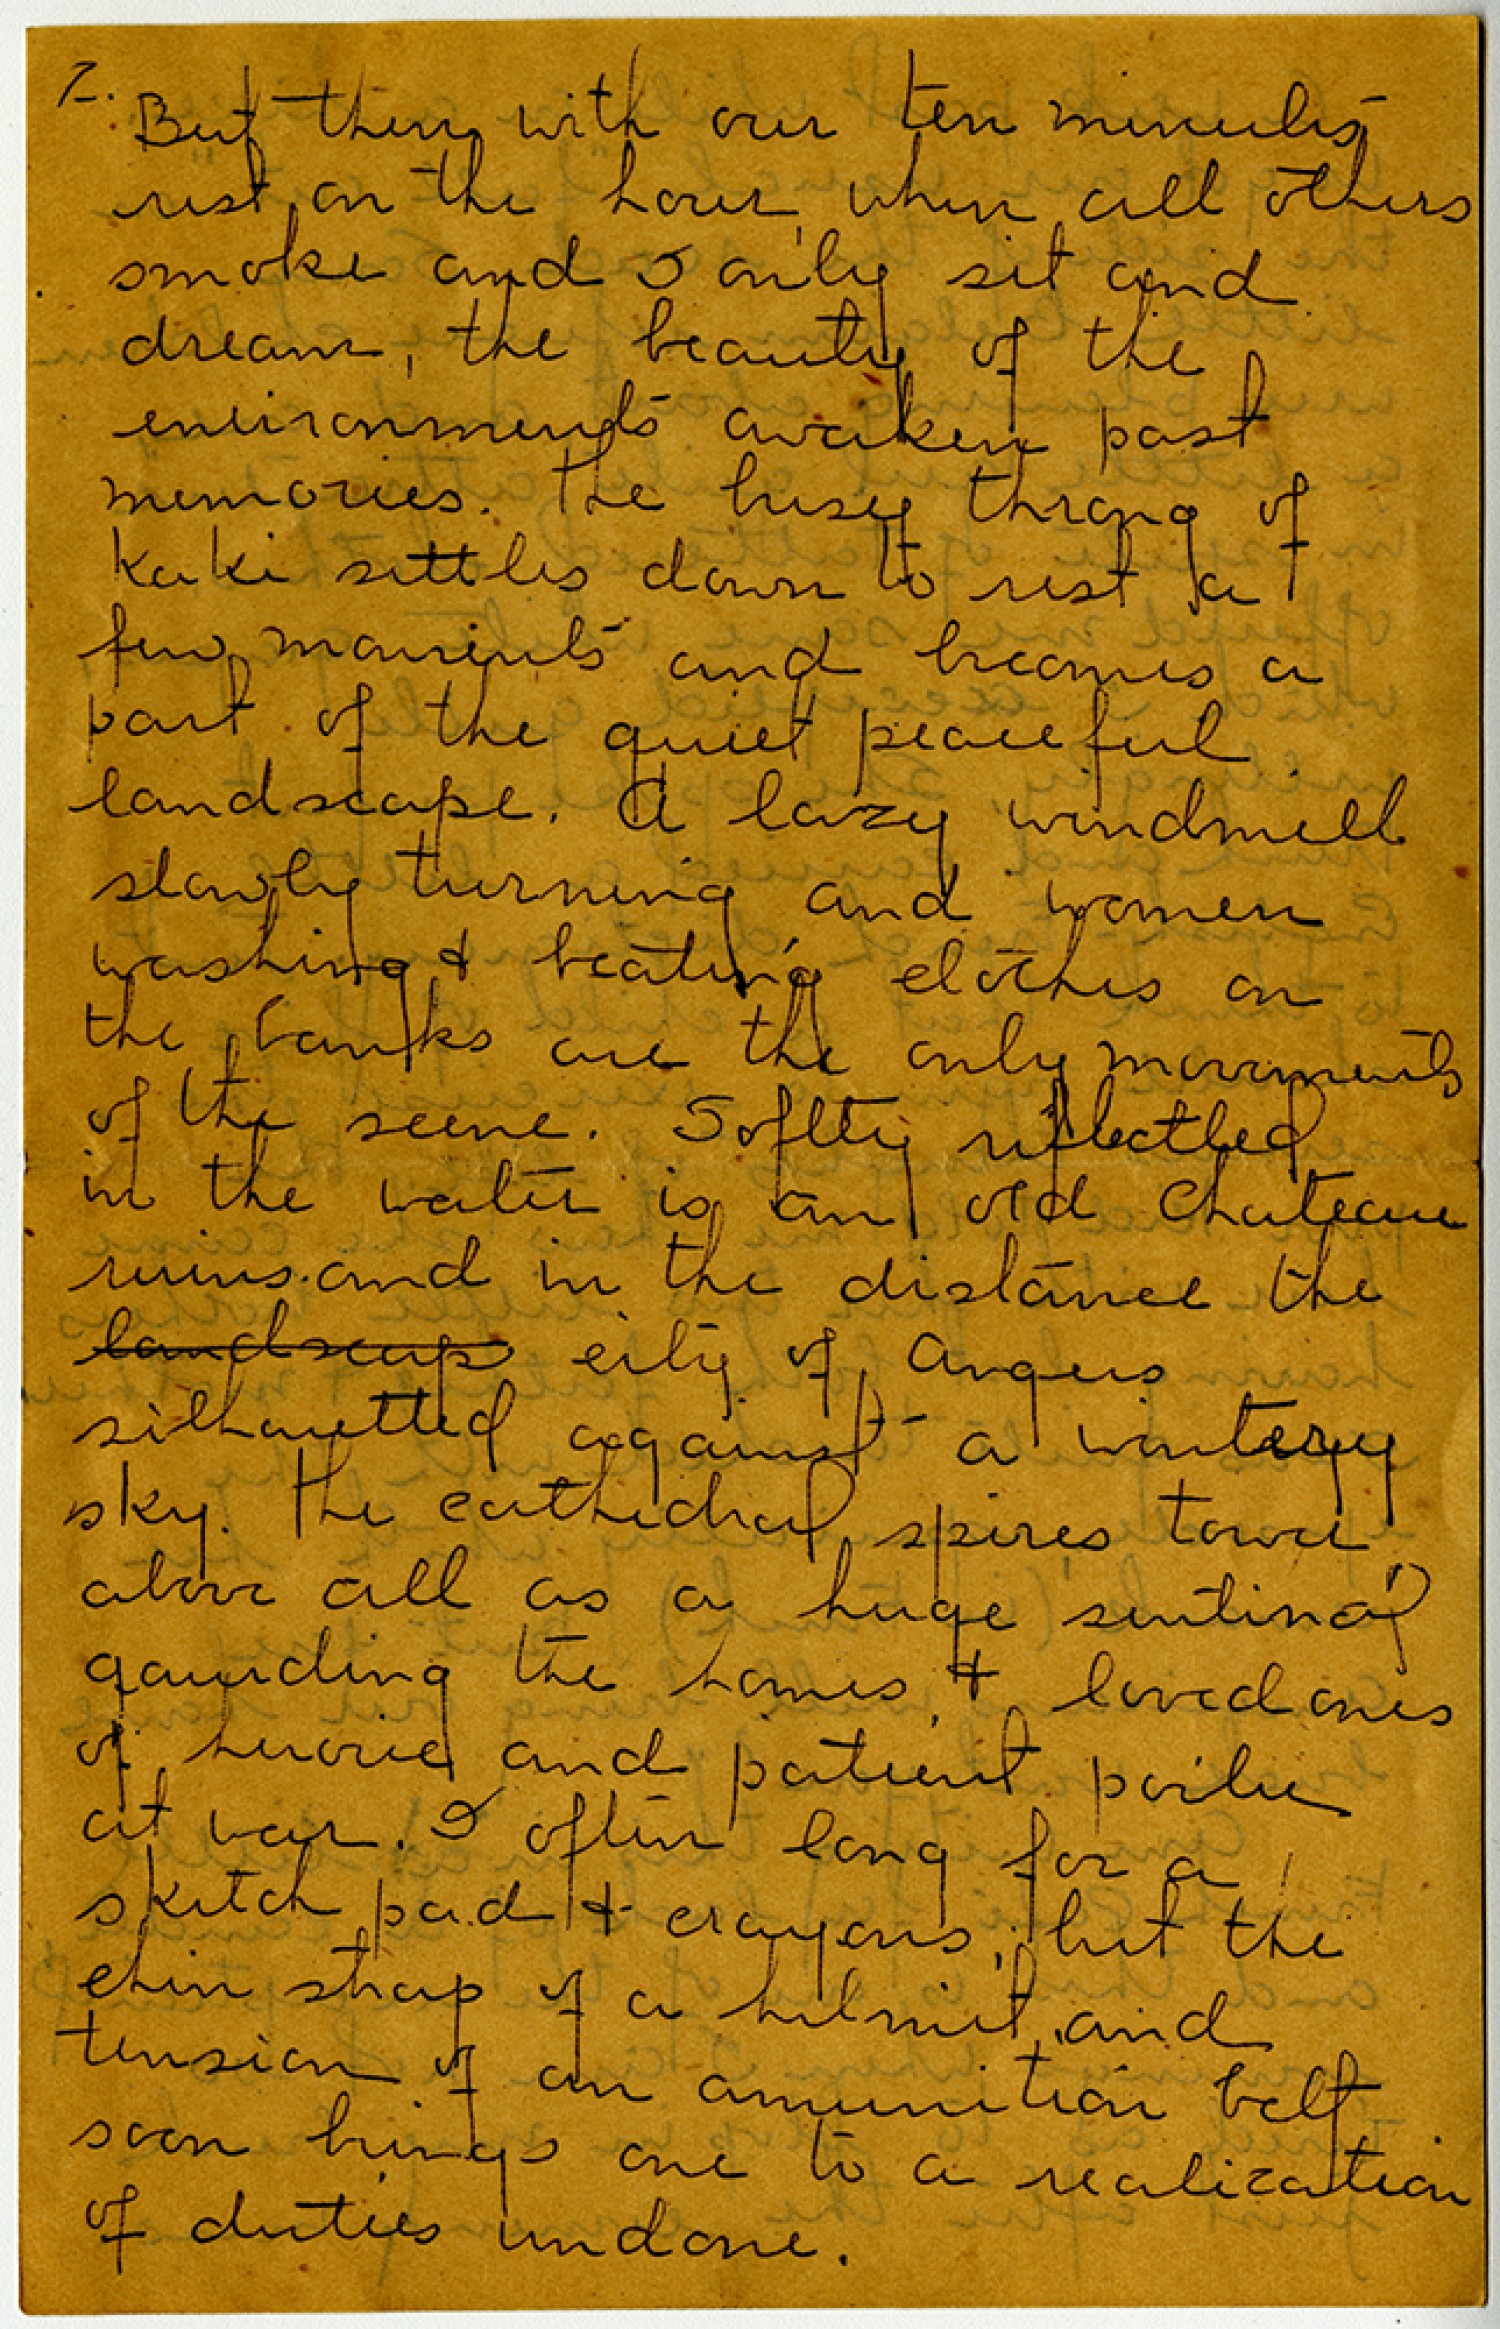 7. But then with our ten minutes
rest on the hour, when all others
smoke and I only sit and
dream, the beauty of the
environments awaken past
memories. The busy throng of
Kaki settles down to rest a
few moments and becomes a
part of the quiet peaceful
landscape. A lazy windmill
slowly turning and women
washing & beating clothes on
the banks are the only movements
of the scene. Softly reflected
in the water is an old chateau
ruins and in the distance the
landscap city of Angers
silhouetted against a wintery
sky. The cathedral spires tower
above all as a huge sentinal
gaurding the homes & loved ones
of heroric and patient poilu
at war. I often long for a
sketch pad & crayons, but the
chin strap of a helmit, and
tension of an amunition belt
soon brings one to a realization
of duties undone.